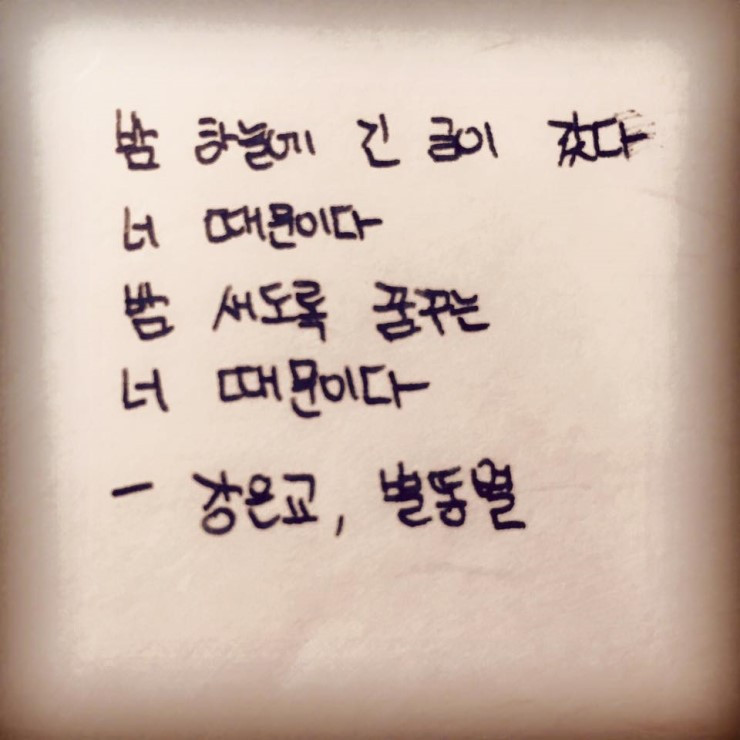 밤 하늘에 긴 금이 갔다
너 때문이다
밤 새도록 꿈꾸는
너 때문이다
- 강은교, 별똥별